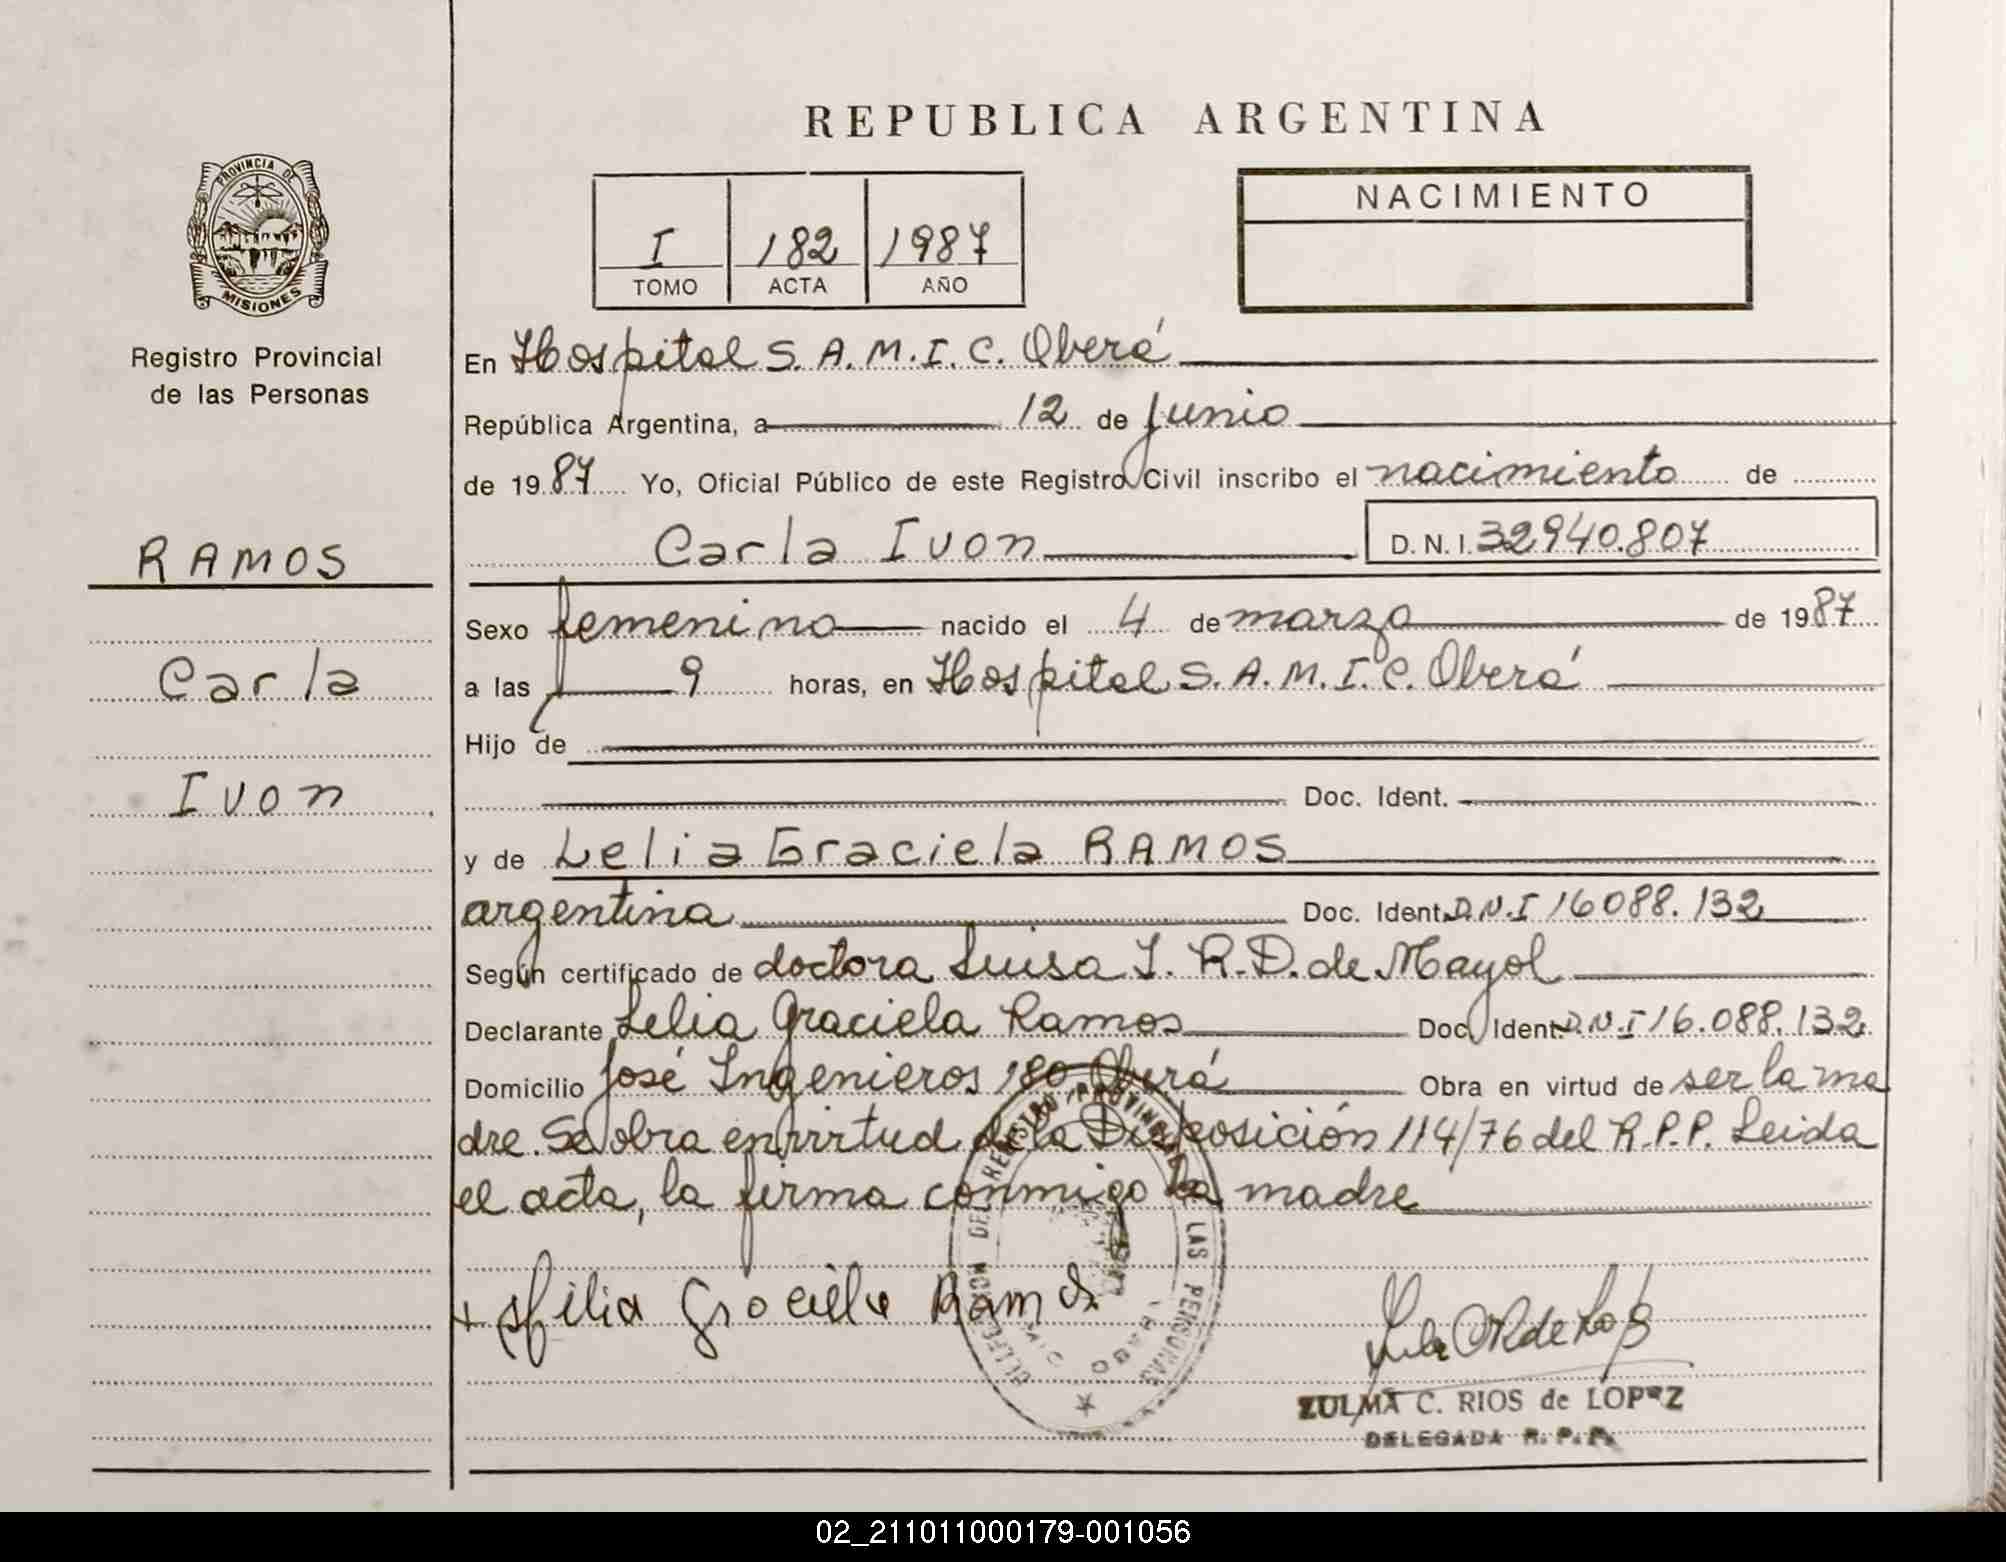 REPUBLICA ARGENTINA
PROVINCIA DE
MISIONES
Registro Provincial
de las Personas
I 182 1987
TOMO ACTA AÑO
NACIMIENTO
En Hospital S. A. M. I. C. Oberá
República Argentina, a 12 de junio
de 1987 Yo, Oficial Público de este Registro Civil inscribo el nacimiento de
Carla Ivon D. N. I. 32940.807
RAMOS
Carla
Ivon
Sexo femenino nacido el 4 de marzo de 1987
a las 9 horas, en Hospital S. A. M. I. C. Oberá
Hijo de
Doc. Ident.
y de Lelia Graciela RAMOS
argentina Doc. Ident. D.N.I 16088.132
Según certificado de doctora Luisa I. R. D. de Mayol
Declarante Lelia Graciela Ramos Doc. Ident. D.N.I 16.088.132
Domicilio José Ingenieros 180 Oberá Obra en virtud de ser la ma
dre. Se obra en virtud de la Disposición 114/76 del R.P.P. Leida
el acta, la firma conmigo la madre
REGISTRO PROVINCIAL
DEL
LAS PERSONAS
OBERA
ZULMA C. RIOS de LOPEZ
DELEGADA R. P. P.
02_211011000179-001056